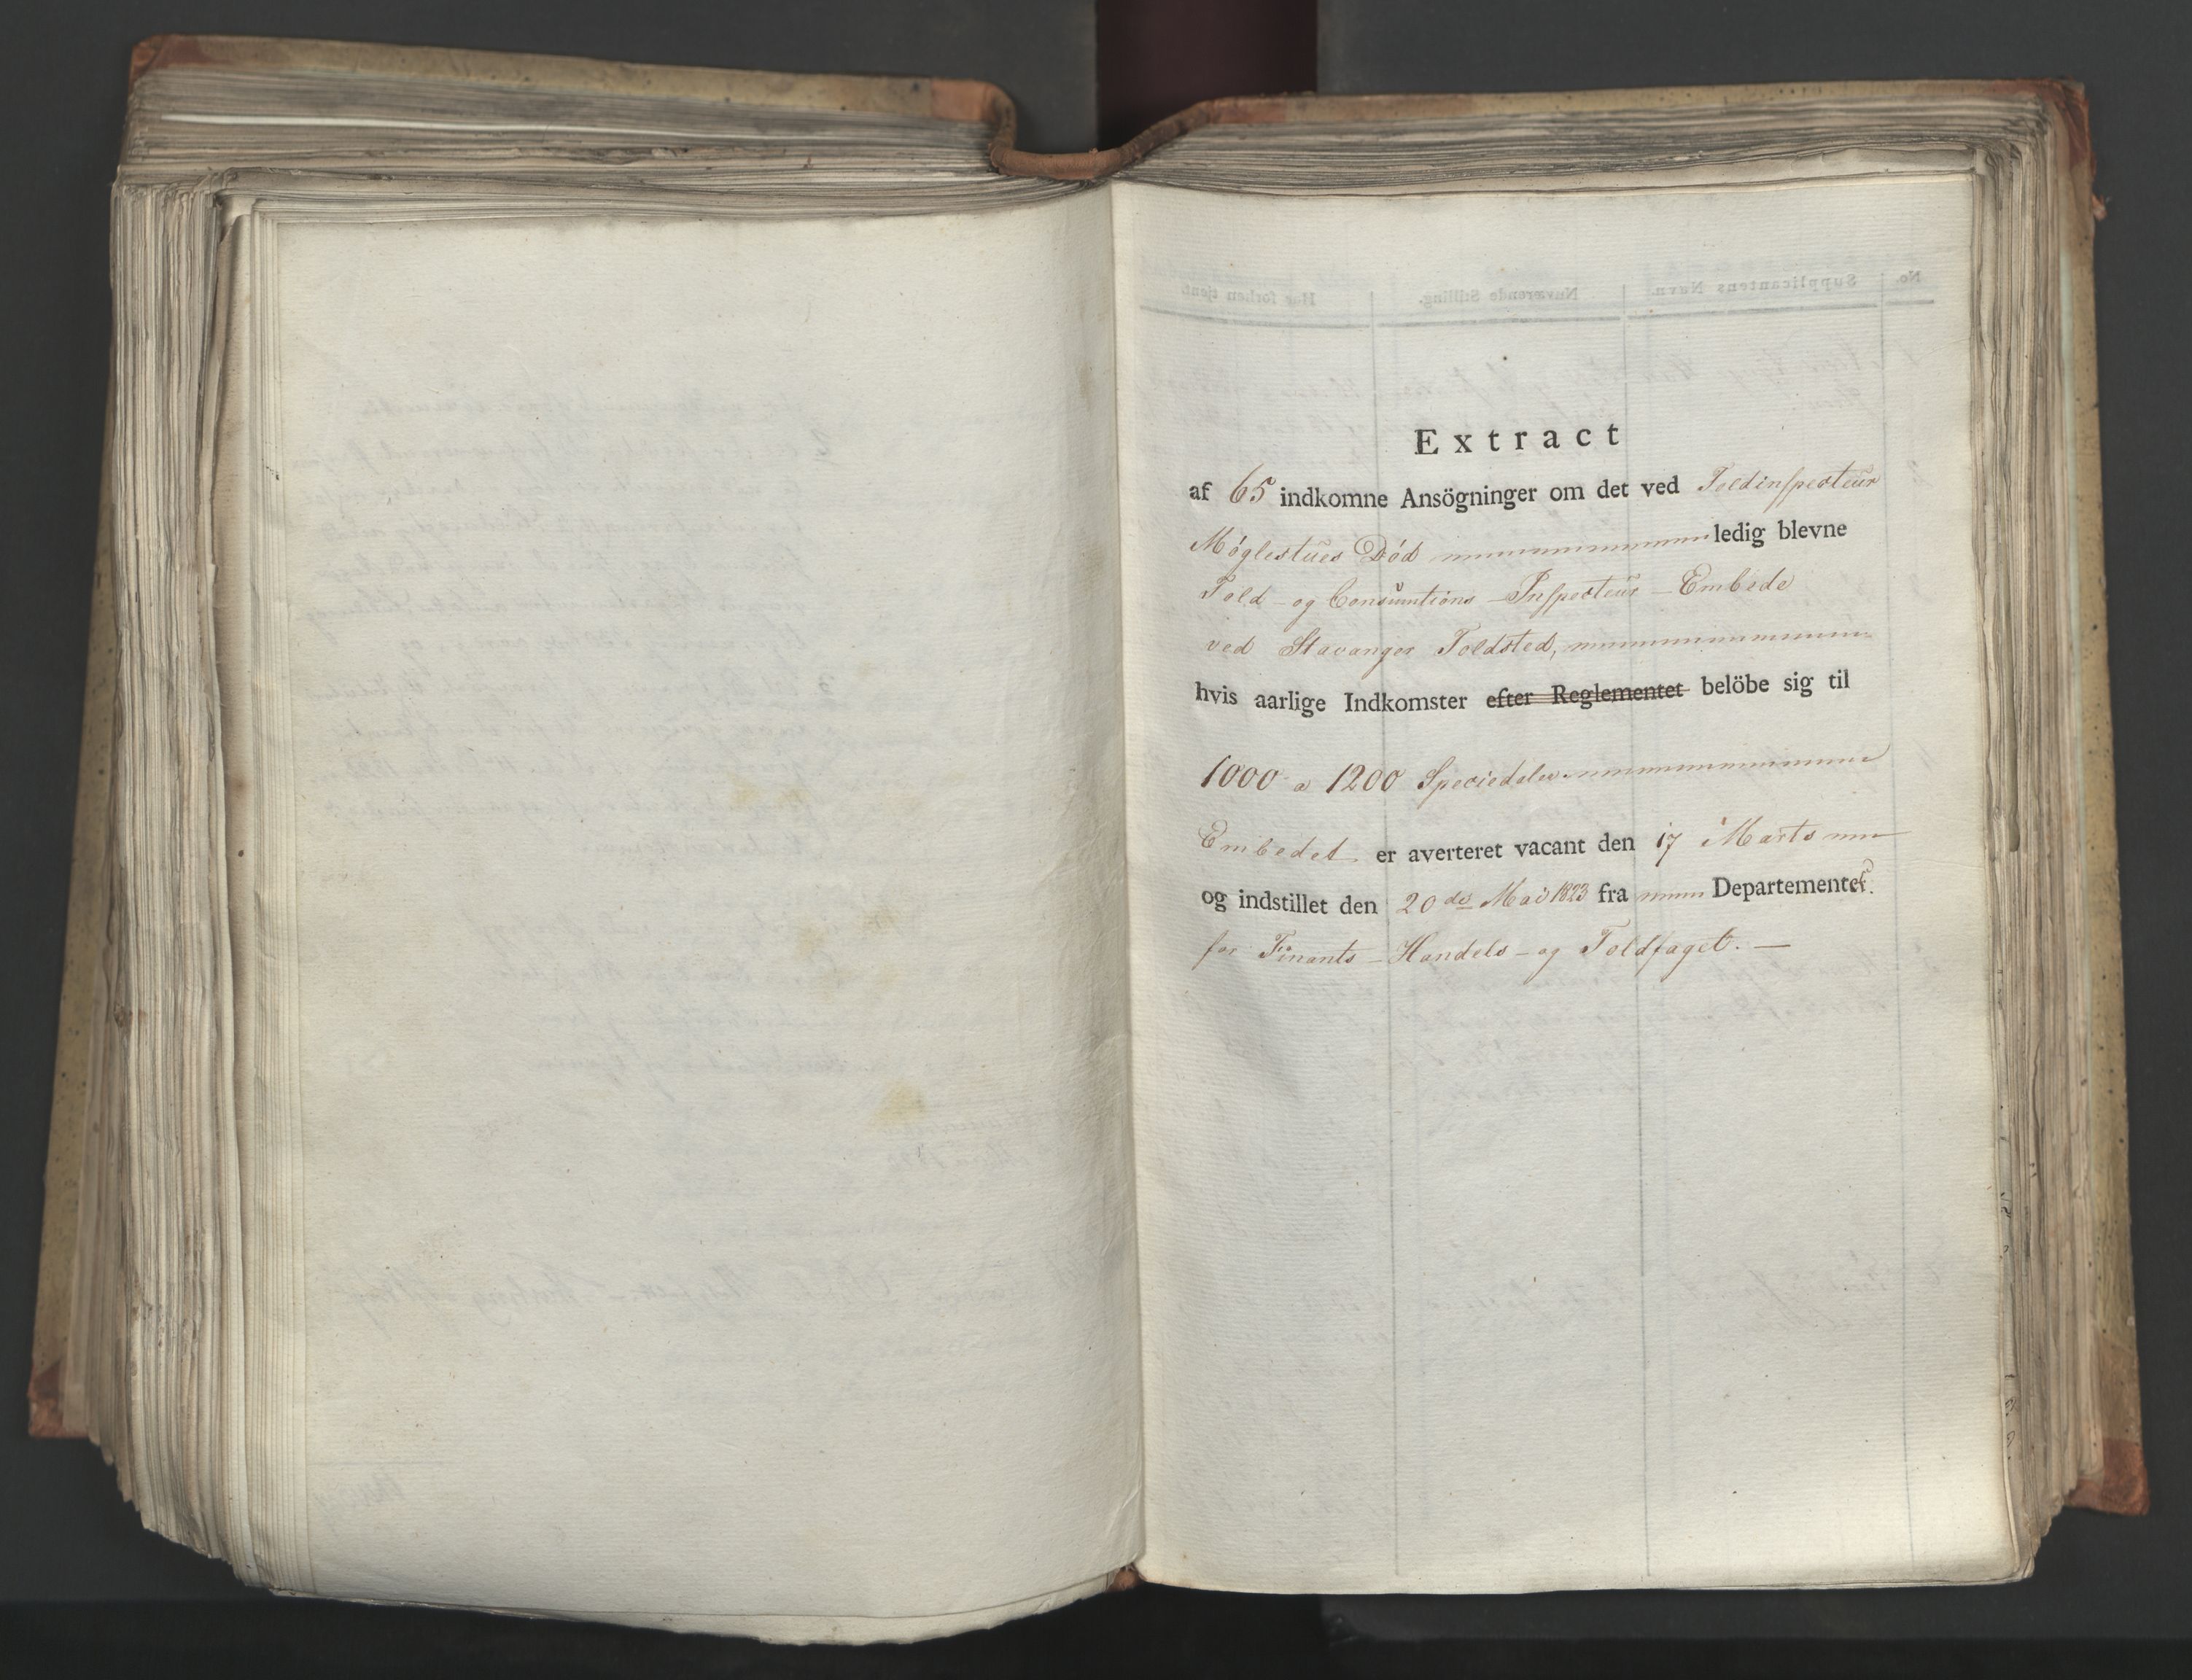 Extract
af 65 indkomne Ansögninger om det ved Toldinspecteur
Möglestues Död ledig blevne
Told- og Consumtions-Inspecteur-Embede
ved Stavanger Toldsted,
hvis aarlige Indkomster efter Reglementet belöbe sig til
1000 a 1200 Speciedaler
Embedet er averteret vacant den 17 Marts
og indstillet den 20de Mai 1823 fra Departementet
for Finants- Handels- og Toldfaget. —